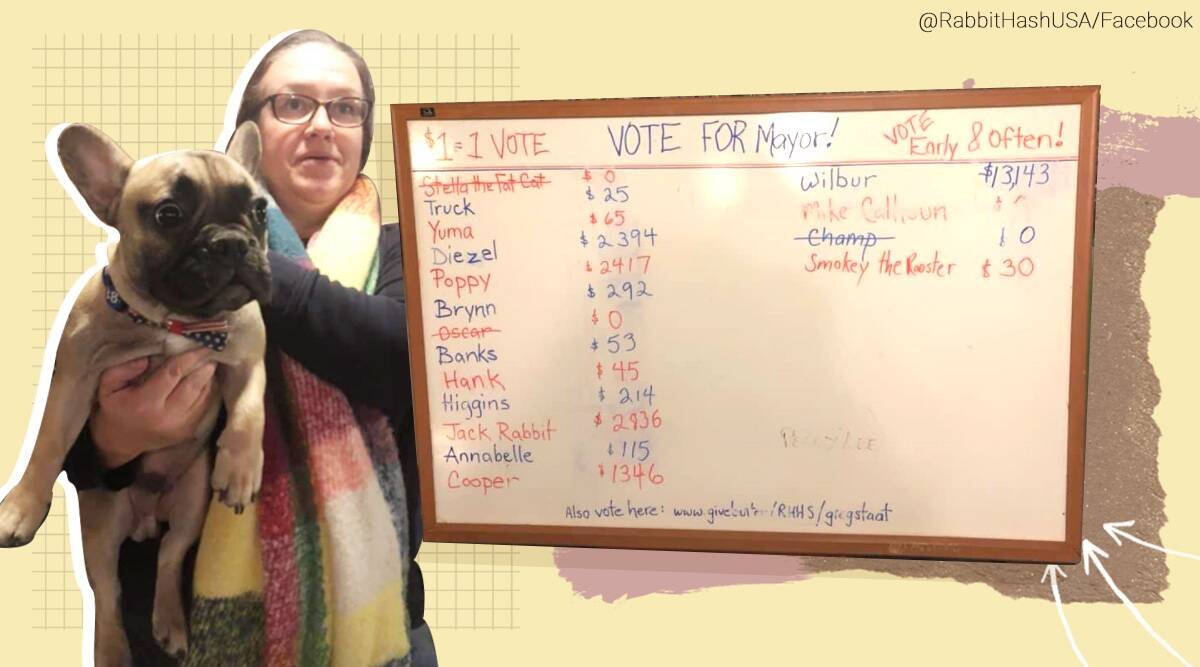 @RabbitHashUSA/Facebook
$1=1 VOTE VOTE FOR Mayor! VOTE Early & Often!
Stella the Fat Cat $0
Truck $25
Yuma $65
Diezel $2394
Poppy $2417
Brynn $292
Oscar $0
Banks $53
Hank $45
Higgins $214
Jack Rabbit
Annabelle $115
Cooper $1346
Wilbur $13,143
Mike Calhoun
Champ $0
Smokey the Rooster $30
Also vote here: